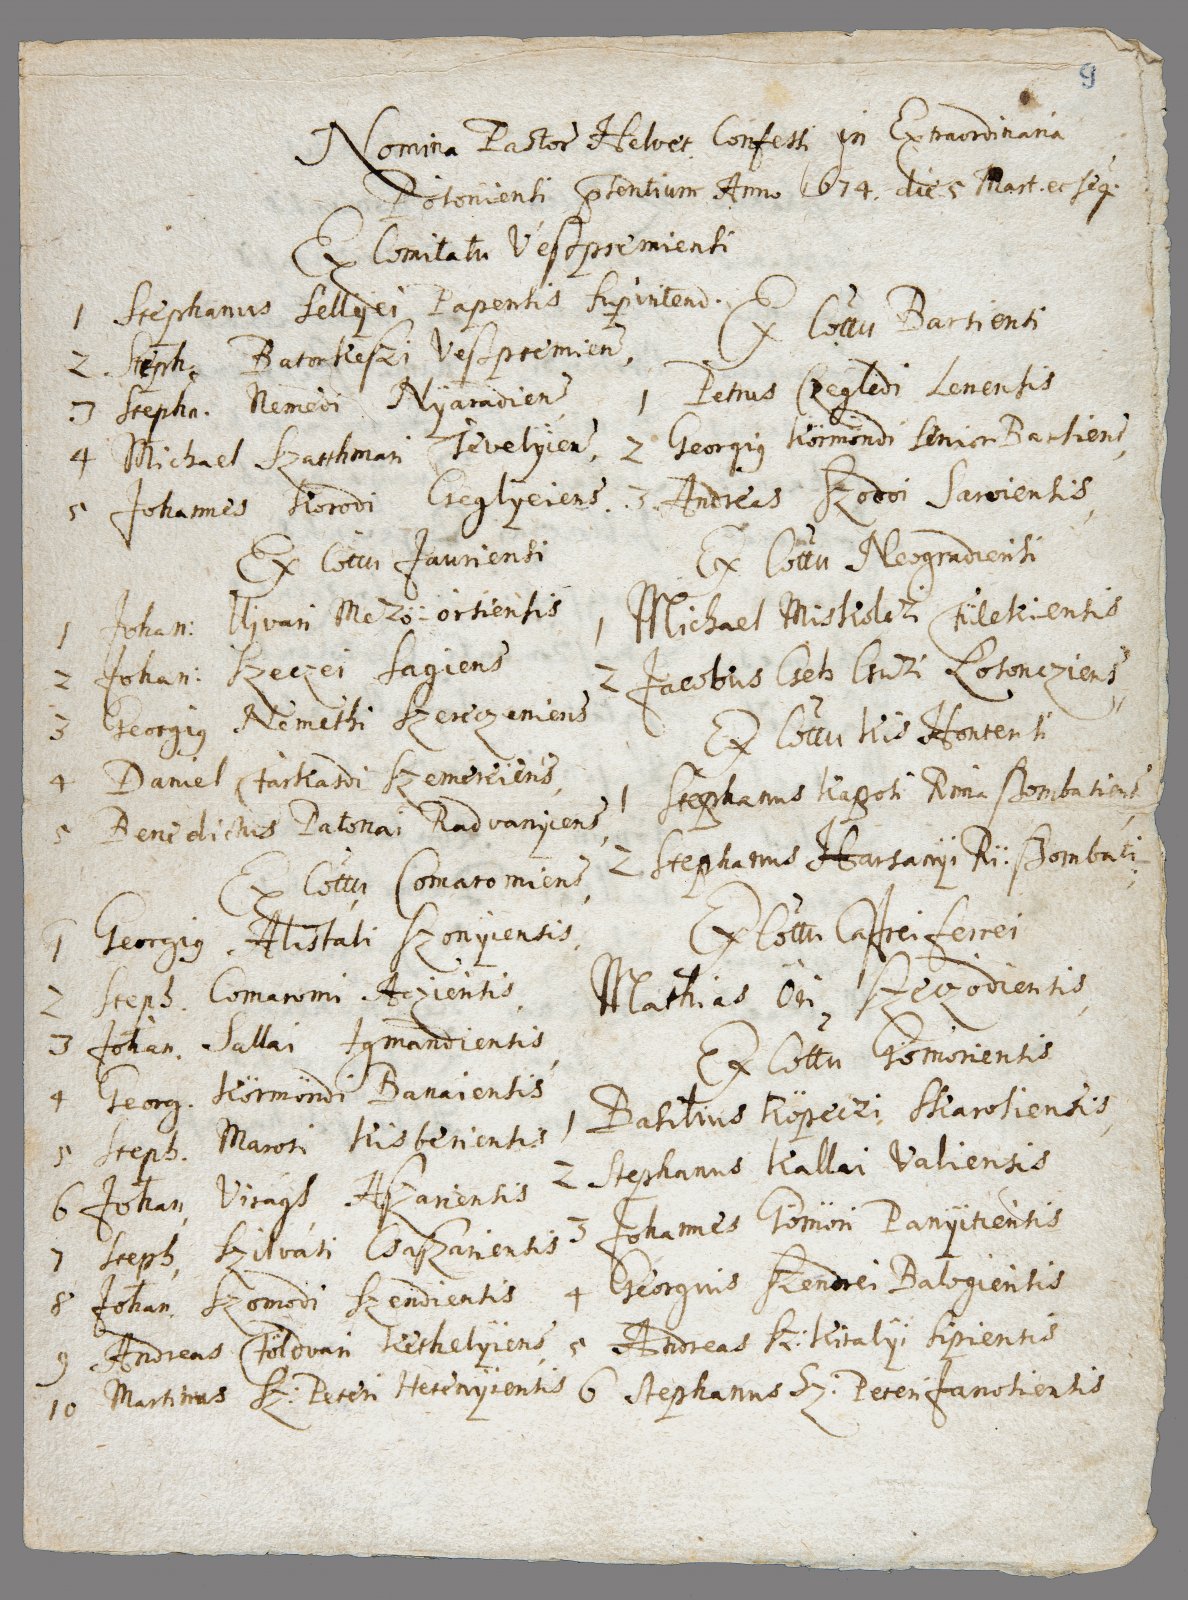 9
Nomina Pastor Helvet Confessi in Extraordinaria
Posoniensi ptentium Anno 1674. die 5 Mart. et seq.
Ex Comitatu Vesspremiensi
1 Stephanus Sellyei Papensis Supintend.
2. Steph. Batorkeszi Vesspremien.
3 Steph. Nemedi Nyaradiens
4 Michael Szatthmari Tevelyiens.
5 Johannes Korodi Cseglyeiens.
Ex Cottu Jauriensi
1 Johan: Ujvari Mező-örsiensis
2 Johan: Szeczei Sagiens
3 Georgig Nemethi Szereczeniens
4 Daniel Farkasdi Szemereiens,
5 Benedictus Patonai Radvanyiens,
Ex Cottu Comaromiens,
1 Georgig Alistali Szonyiensis,
2 Steph. Comaromi Acziensis,
3 Johan. Sallai Igmandiensis,
4 Georg. Körmöndi Banaiensis
5 Steph. Marosi Kisberiensis
6 Johan, Viragh Aszariensis
7 Steph, Szilvasi Csaszariensis
8 Johan. Szomodi Szendiensis
9 Andreas Földvari Kethelyiens,
10 Martinus Sz: Peteri Hetenyiensis
Ex Cottu Barsiensi
1 Petrus Czegledi Levensis
2 Georgig Körmöndi Senior Barsiens,
3. Andreas Szodoi Saroiensis,
Ex Cottu Neogradiensi
1 Michael Miskolczi Filekiensis
2 Jacobus Cseh Csuzi Losoncziens,
Ex Cottu Kis Hontensi
1 Stephanus Kaposi Rima Szombatiens,
2 Stephanus Harsanyi Ri: Szombati
Ex Cottu Castri ferrei
Mathias Öri Szecsödiensis,
Ex Cottu Gömöriensis
1 Basilius Köpeczi Skarosiensis,
2 Stephanus Kallai Valiensis
3 Johannes Gömöri Panyitiensis
4 Georgius Szendrei Balogiensis
5 Andreas Sz: Kiralyi Sipiensis
6 Stephanus Sz: Peteri Janosiensis